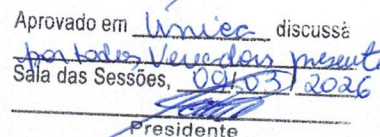 Aprovado em Única discussã
por todos Vereadores presente
Sala das Sessões, 09/03/2026
Presidente